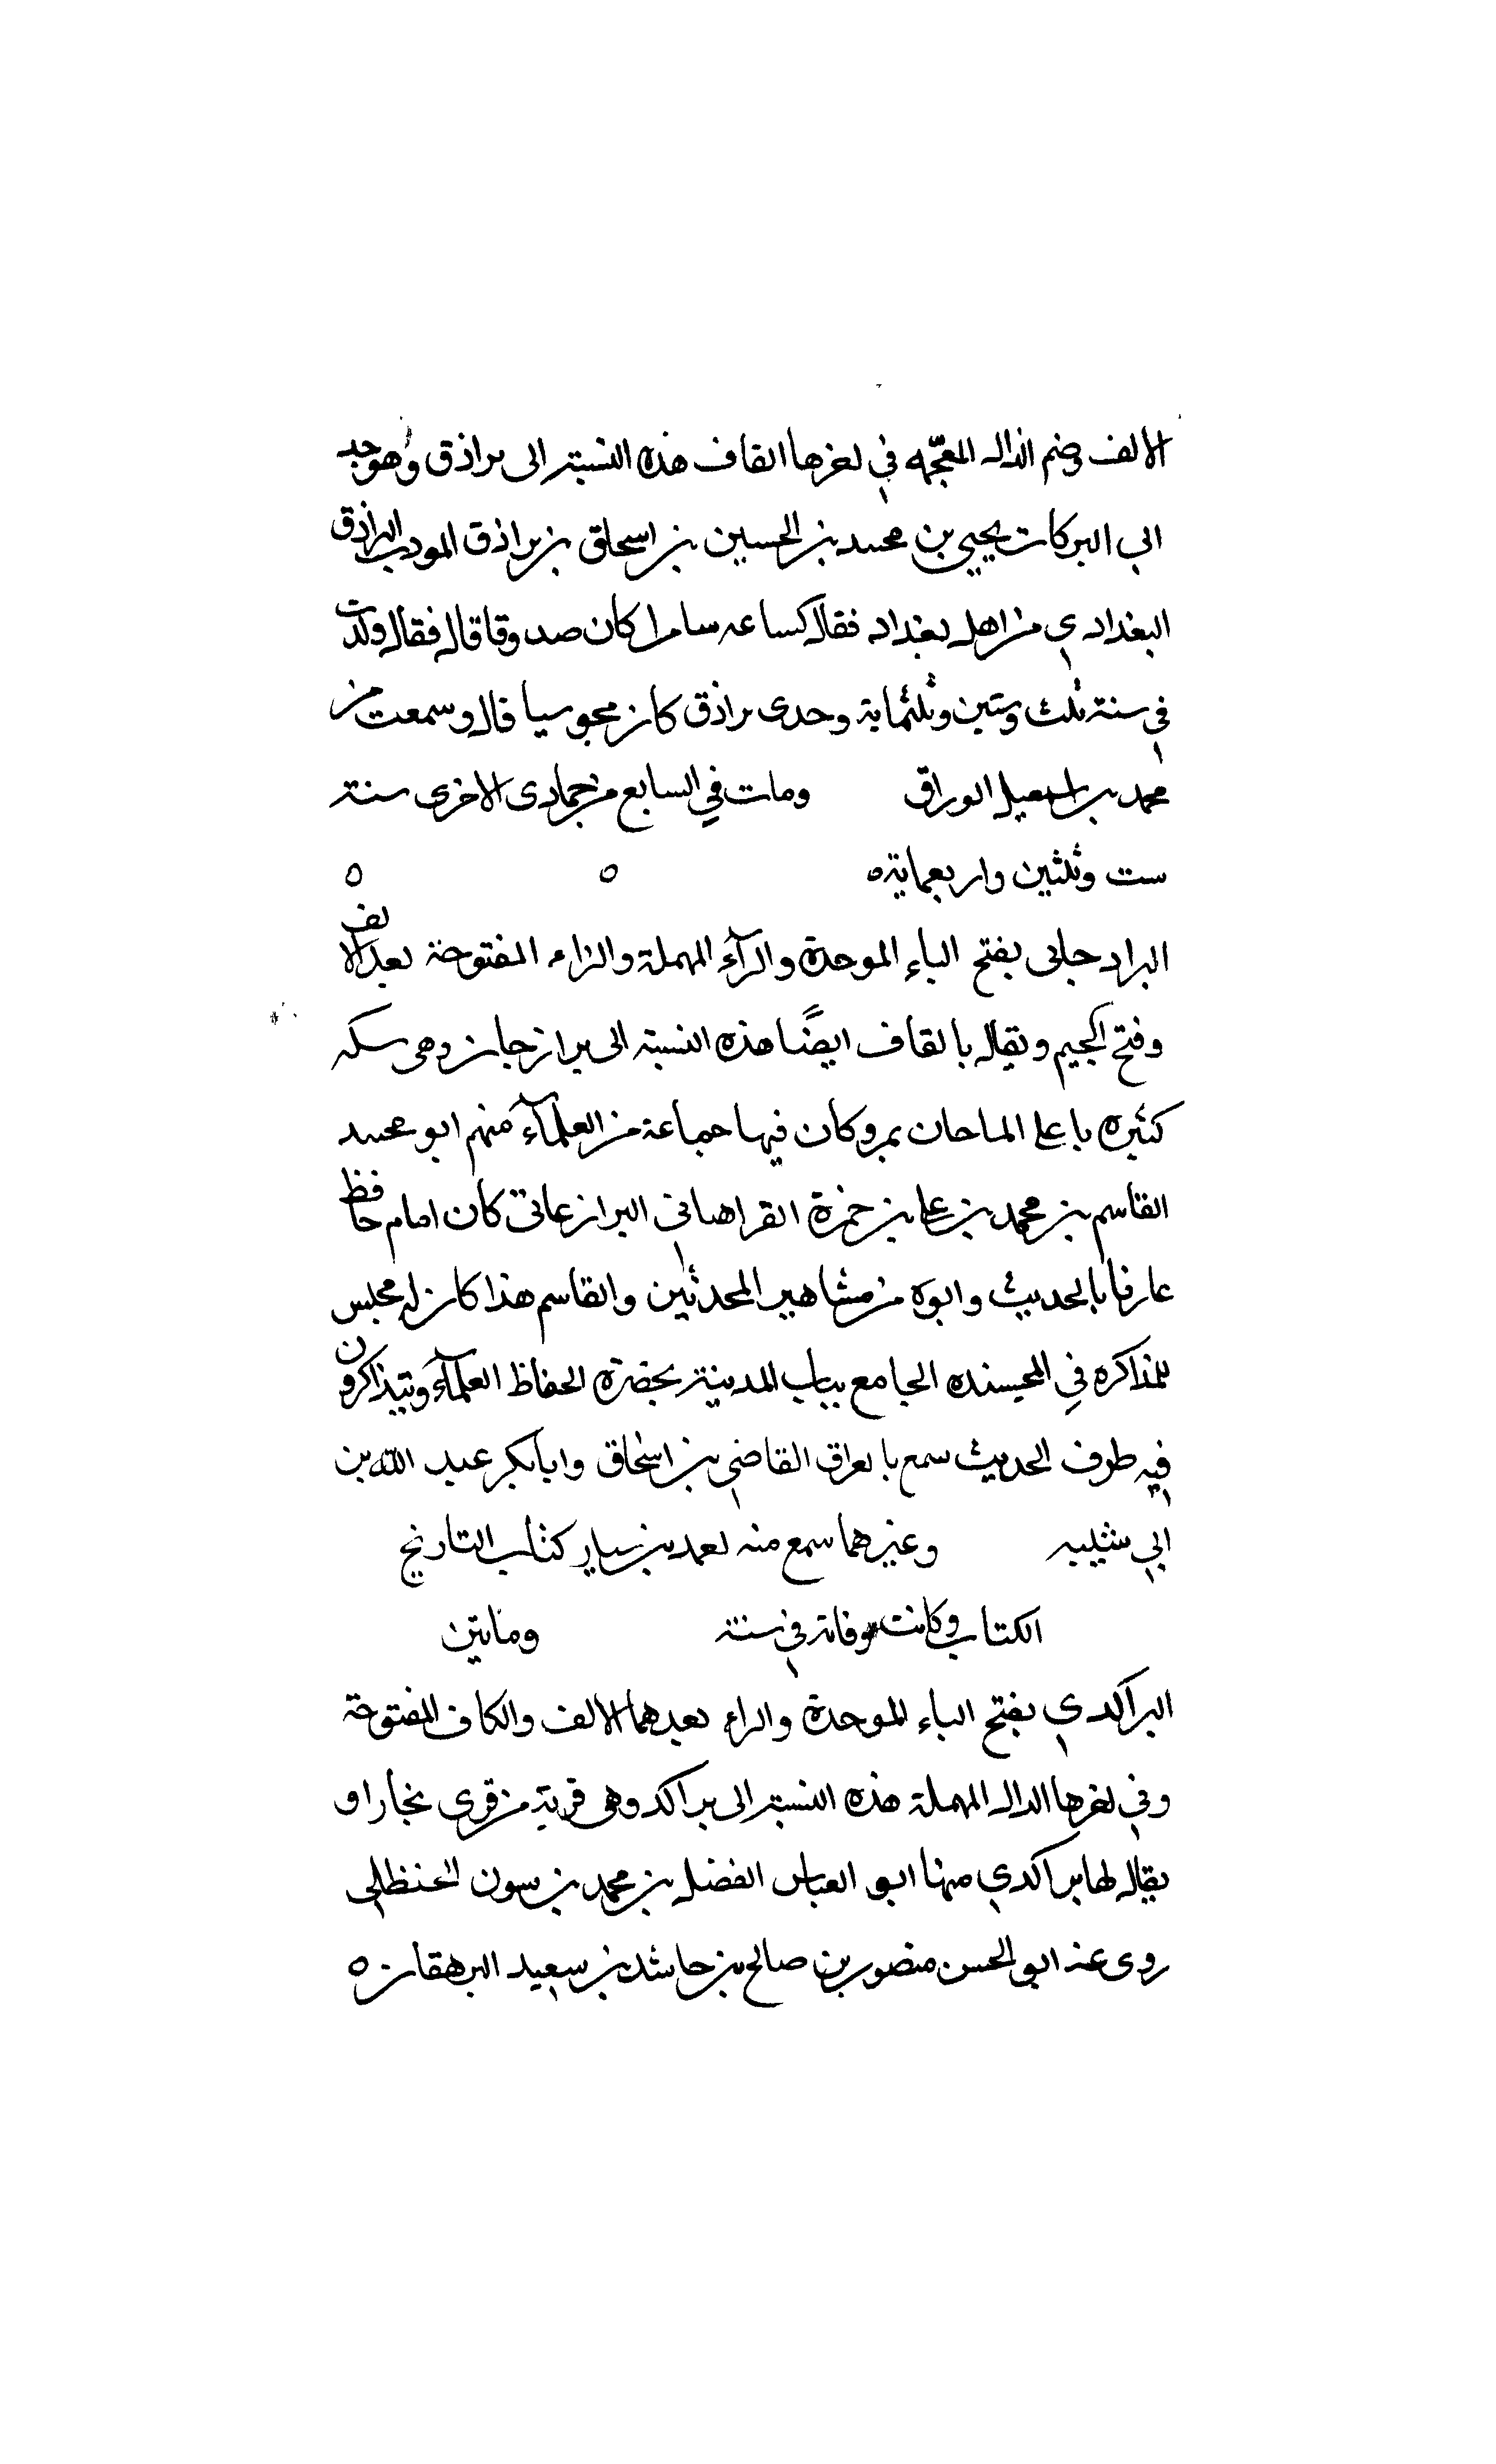 الالف وضم الذال المعجمه في اخرها القاف هذه النسبة الى براذق وهو جد
ابي البركات يحيي بن محمد بن الحسين بن اسحاق بن براذق المودب البراذق
البغدادي من اهل بغداد فقال سامرا كان صدوقا قال فقال ولدت
في سنة ثلث وستين وثلثماية وجدى براذق كان مجوسيا قال وسمعت من
محمد بن اسمعيل الوراق ومات في السابع من جمادى الاخرى سنة
ست وثلثين واربعماية ه ه ه
البرازجانى بفتح الباء الموحدة والرآء المهملة والزاء المفتوحة بعد الالف
وفتح الجيم ويقال بالقاف ايضًا هذه النسبة الى برازجان وهى سكه
كثيره باعلى الماحان بمرو كان فيها جماعة من العلمآء منهم ابو محمد
القاسم بن محمد بن على بن حمزة القراهيانى كان امام حافظ
عارفا بالحديث وابوه من مشاهير المحدثين والقاسم هذا كان له مجلس
للمذاكره في الجامع بباب المدينة بحضرة الحفاظ العلمآء ويتذاكرون
فيه طرف الحديث سمع بالعراق القاضي بن اسحاق وابا بكر عبد الله بن
ابي شيبه وغيرهما سمع منه احمد بن سيار كتاب التاريخ
الكتاب وكانت وفاته في سنة وماتين
البراكدي بفتح الباء الموحدة والراء بعدهما الالف والكاف المفتوحة
وفي اخرها الدال المهملة هذه النسبة الى براكد وهى قرية من قرى بخارا و
يقال لها براكدي منها ابو العباس الفضل بن محمد بن سون الحنظلي
روى عنه ابو الحسن منصور بن صالح بن حاشد بن سعيد البرهقان ه